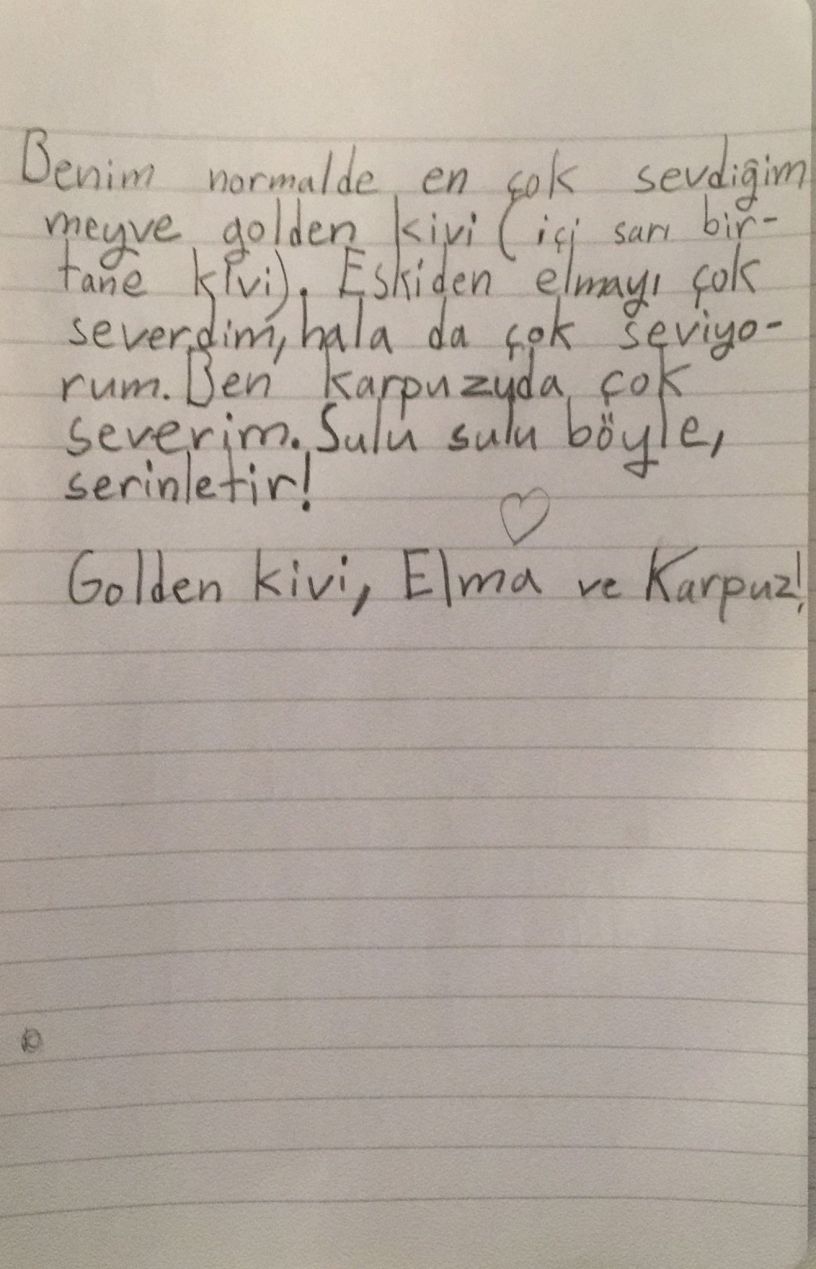 Benim normalde en çok sevdiğim
meyve golden kivi (içi sarı bir-
tane kivi). Eskiden elmayı çok
severdim, hala da çok seviyo-
rum. Ben karpuzyda çok
severim. Sulu sulu böyle,
serinletir!
Golden kivi, Elma ve Karpuz!